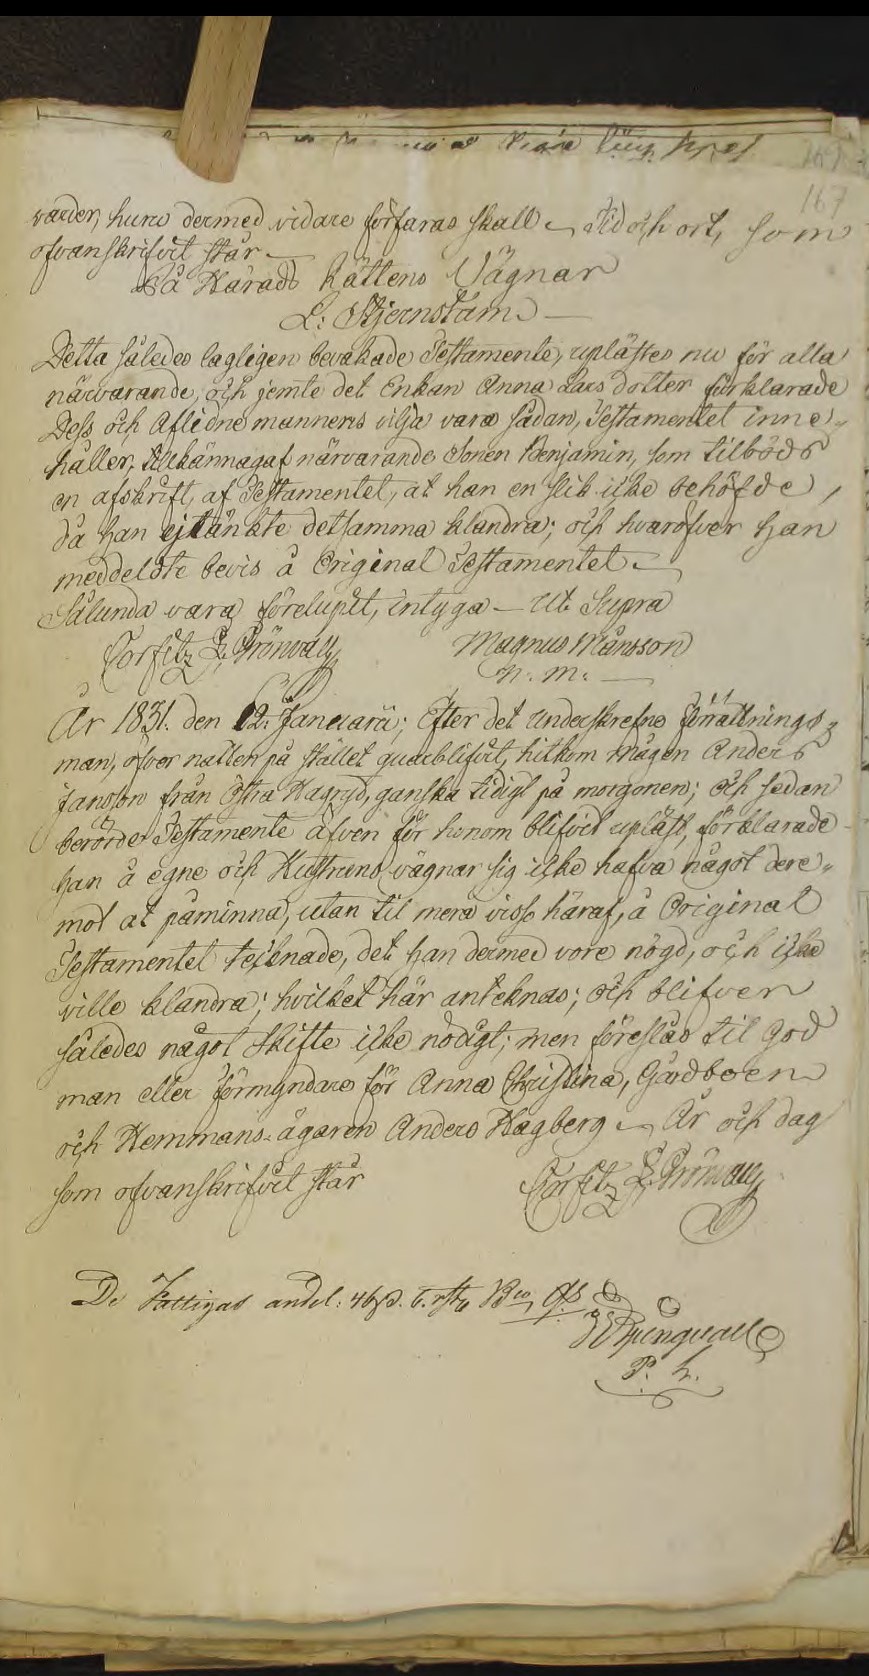 167
varder, huru dermed vidare förfaras skall. Tid och ort, som
ofvanskrifvit står.
På Härads Rättens Vägnar
L: Stjernstam.
Detta således lagligen bevakade Testamente, uplästes nu för alla
närvarande, och jemte det Enkan Anna Lars dotter förklarade
Dess och Aflidne mannens vilja vara sådan, Testamentet inne-
håller, tillkännagaf närvarande Sonen Benjamin, som tilböds
en afskrift, af Testamentet, at han en slik icke behöfde,
då han ej tänkte detsamma klandra; och hvaröfver han
meddeldte bevis å Original Testamentet.
Sålunda vara förelupit, intyga – Ut Supra
Corfitz L. Grönvall Magnus Månsson
n. m.
År 1831. den 12. Januarii; Efter det undertskrefne förrättnings
man, öfver natten på stället quarblifvit, hitkom mågen Anders
Janson från Östra Hagryd, ganska tidigt på morgonen; och sedan
berörde Testamente äfven för honom blifvit upläst, förklarade
han å egne och Hustruns vägnar sig icke hafva något dere-
mot at påminna, utan til mera visso häraf, å Original
Testamentet tecknade, det han dermed vore nögd, och icke
ville klandra; hvilket här anteknas; och blifver
således något skifte icke nödigt; men föreslås til God
man eller förmyndare för Anna Christina, Gårdboen
och Hemmans-ägaren Anders Hagberg. År och dag
som ofvanskrifvit står Corfitz L. Grönvall
De Fattigas andel: 46 s. 6. r/st Bco,
P. h.